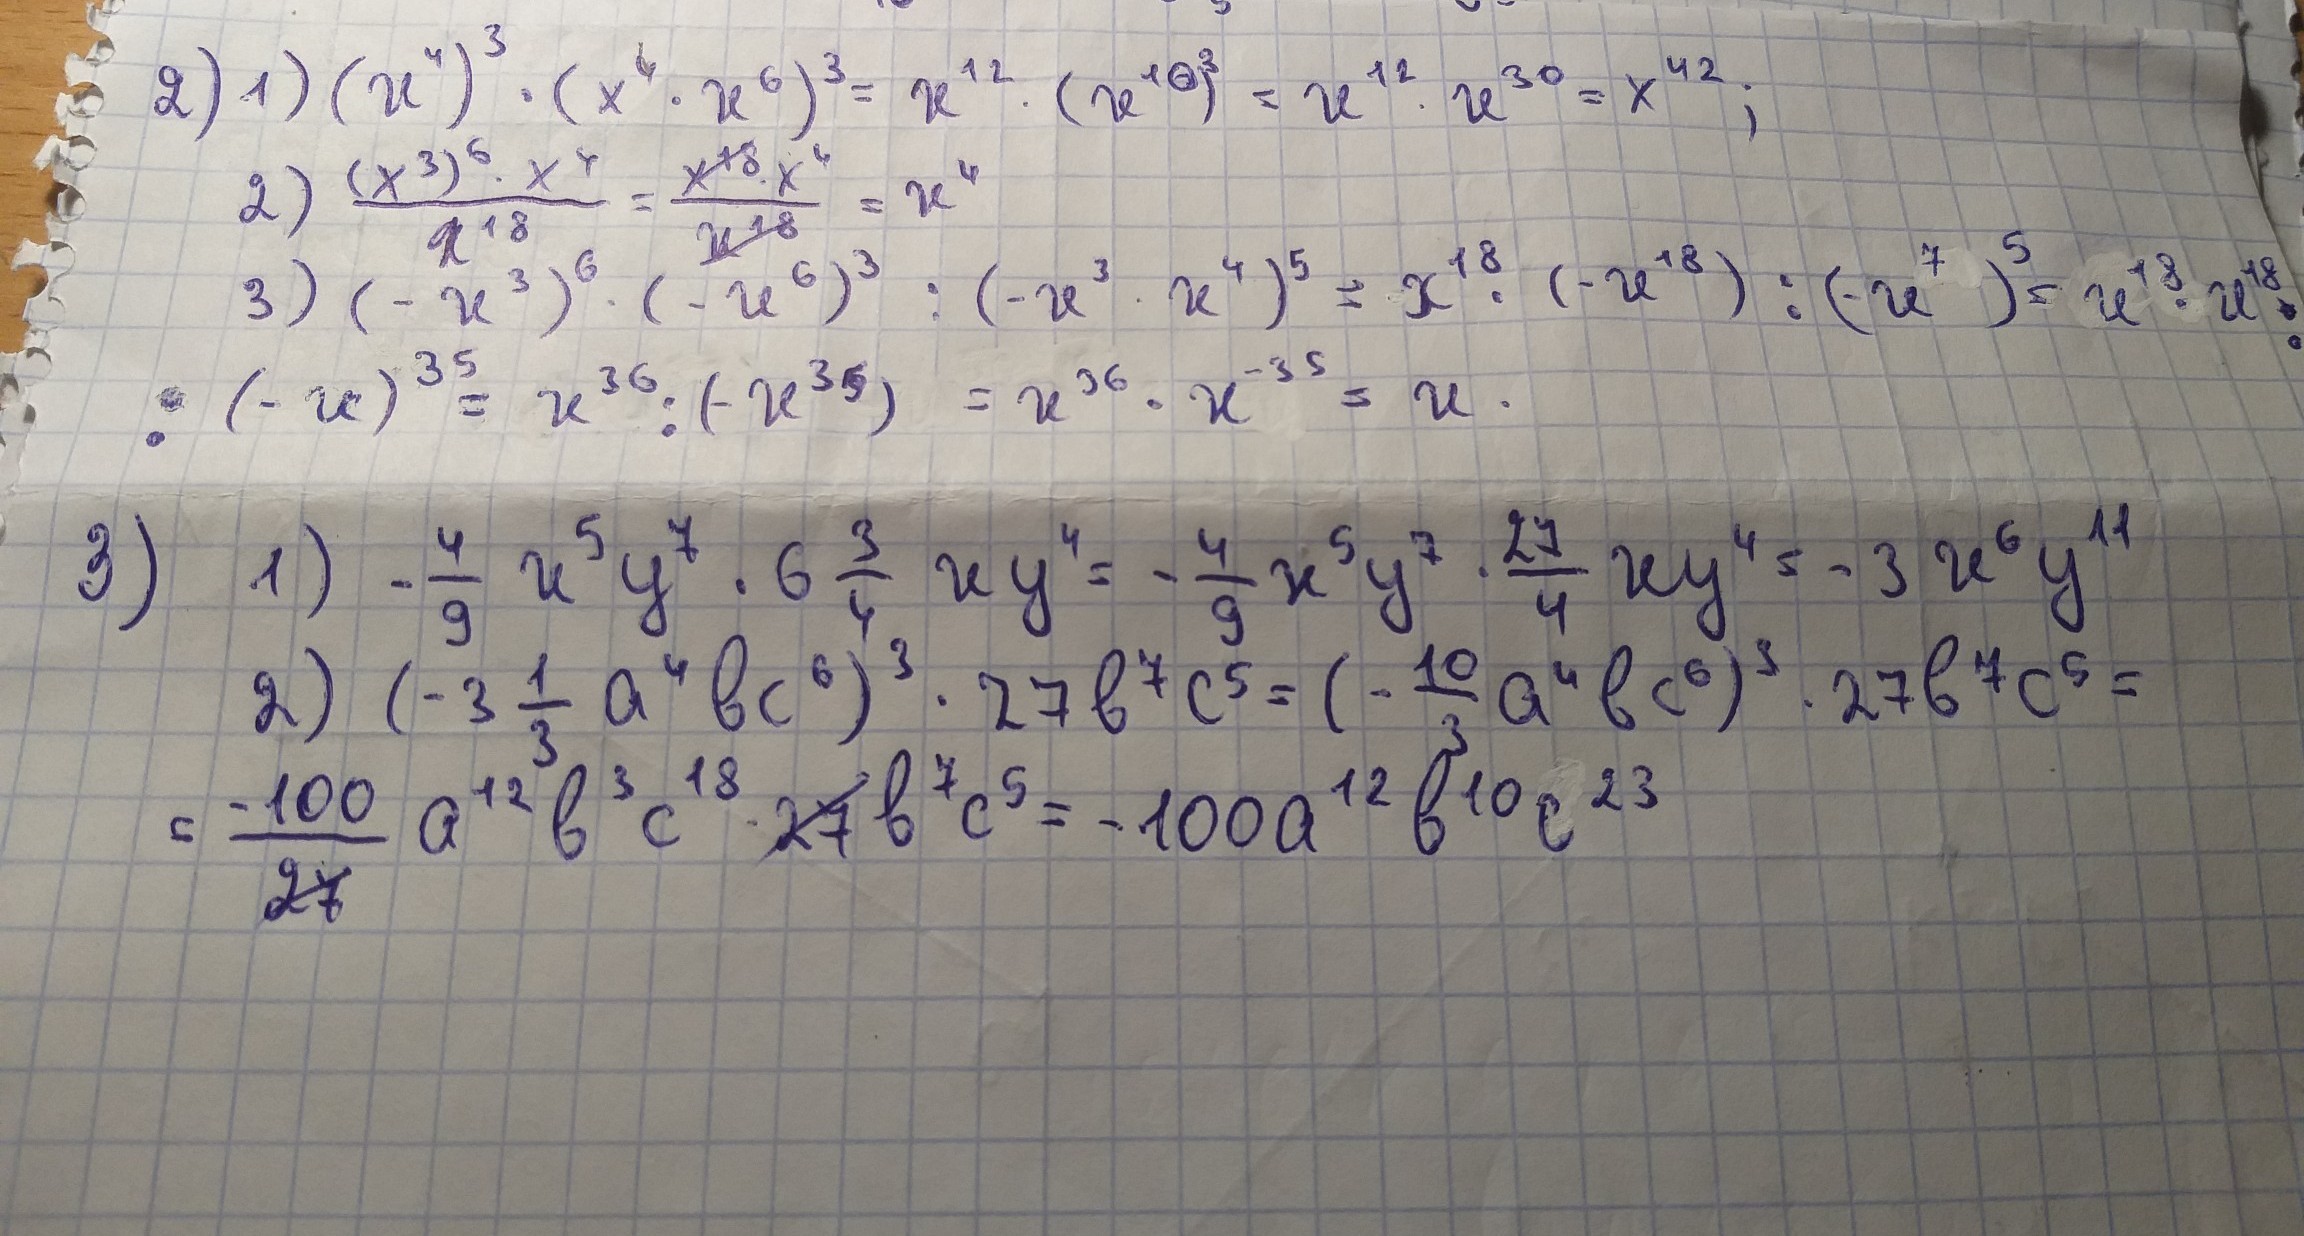 2) 1) (x⁴)³ · (x⁴ · x⁶)³ = x¹² · (x¹⁰)³ = x¹² · x³⁰ = x⁴² ;
2) (x³)⁶ · x⁴ / x¹⁸ = x¹⁸ · x⁴ / x¹⁸ = x⁴
3) (-x³)⁶ · (-x⁶)³ : (-x³ · x⁴)⁵ = x¹⁸ · (-x¹⁸) : (-x⁷)⁵ = x¹⁸ · x¹⁸ :
: (-x)³⁵ = x³⁶ : (-x³⁵) = x³⁶ · x⁻³⁵ = x .
3) 1) -4/9 x⁵y⁷ · 6 3/4 xy⁴ = -4/9 x⁵y⁷ · 27/4 xy⁴ = -3x⁶y¹¹
2) (-3 1/3 a⁴bc⁶)³ · 27b⁷c⁵ = (-10/3 a⁴bc⁶)³ · 27b⁷c⁵ =
= -100/27 a¹²b³c¹⁸ · 27b⁷c⁵ = -100a¹²b¹⁰c²³